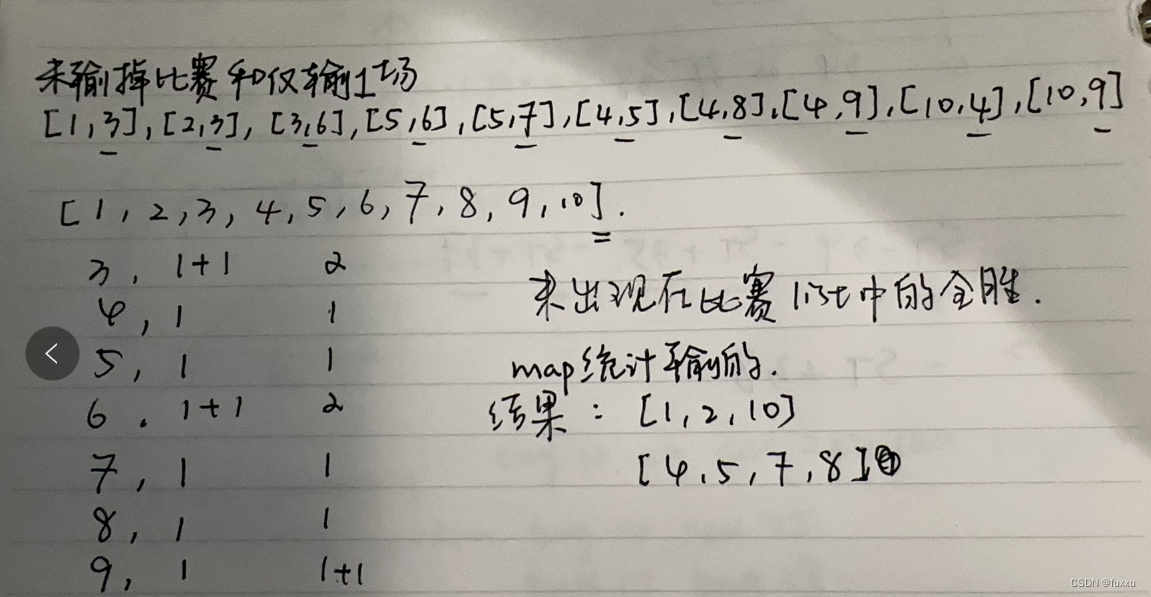 未输掉比赛和仅输1场
[1,3],[2,3],[3,6],[5,6],[5,7],[4,5],[4,8],[4,9],[10,4],[10,9]
[1,2,3,4,5,6,7,8,9,10].
3, 1+1 2
4, 1 1
5, 1 1
6. 1+1 2
7, 1 1
8, 1 1
9, 1 1+1
未出现在比赛list中的全胜.
map统计输的.
结果: [1,2,10]
[4,5,7,8]
CSDN @fuxxu